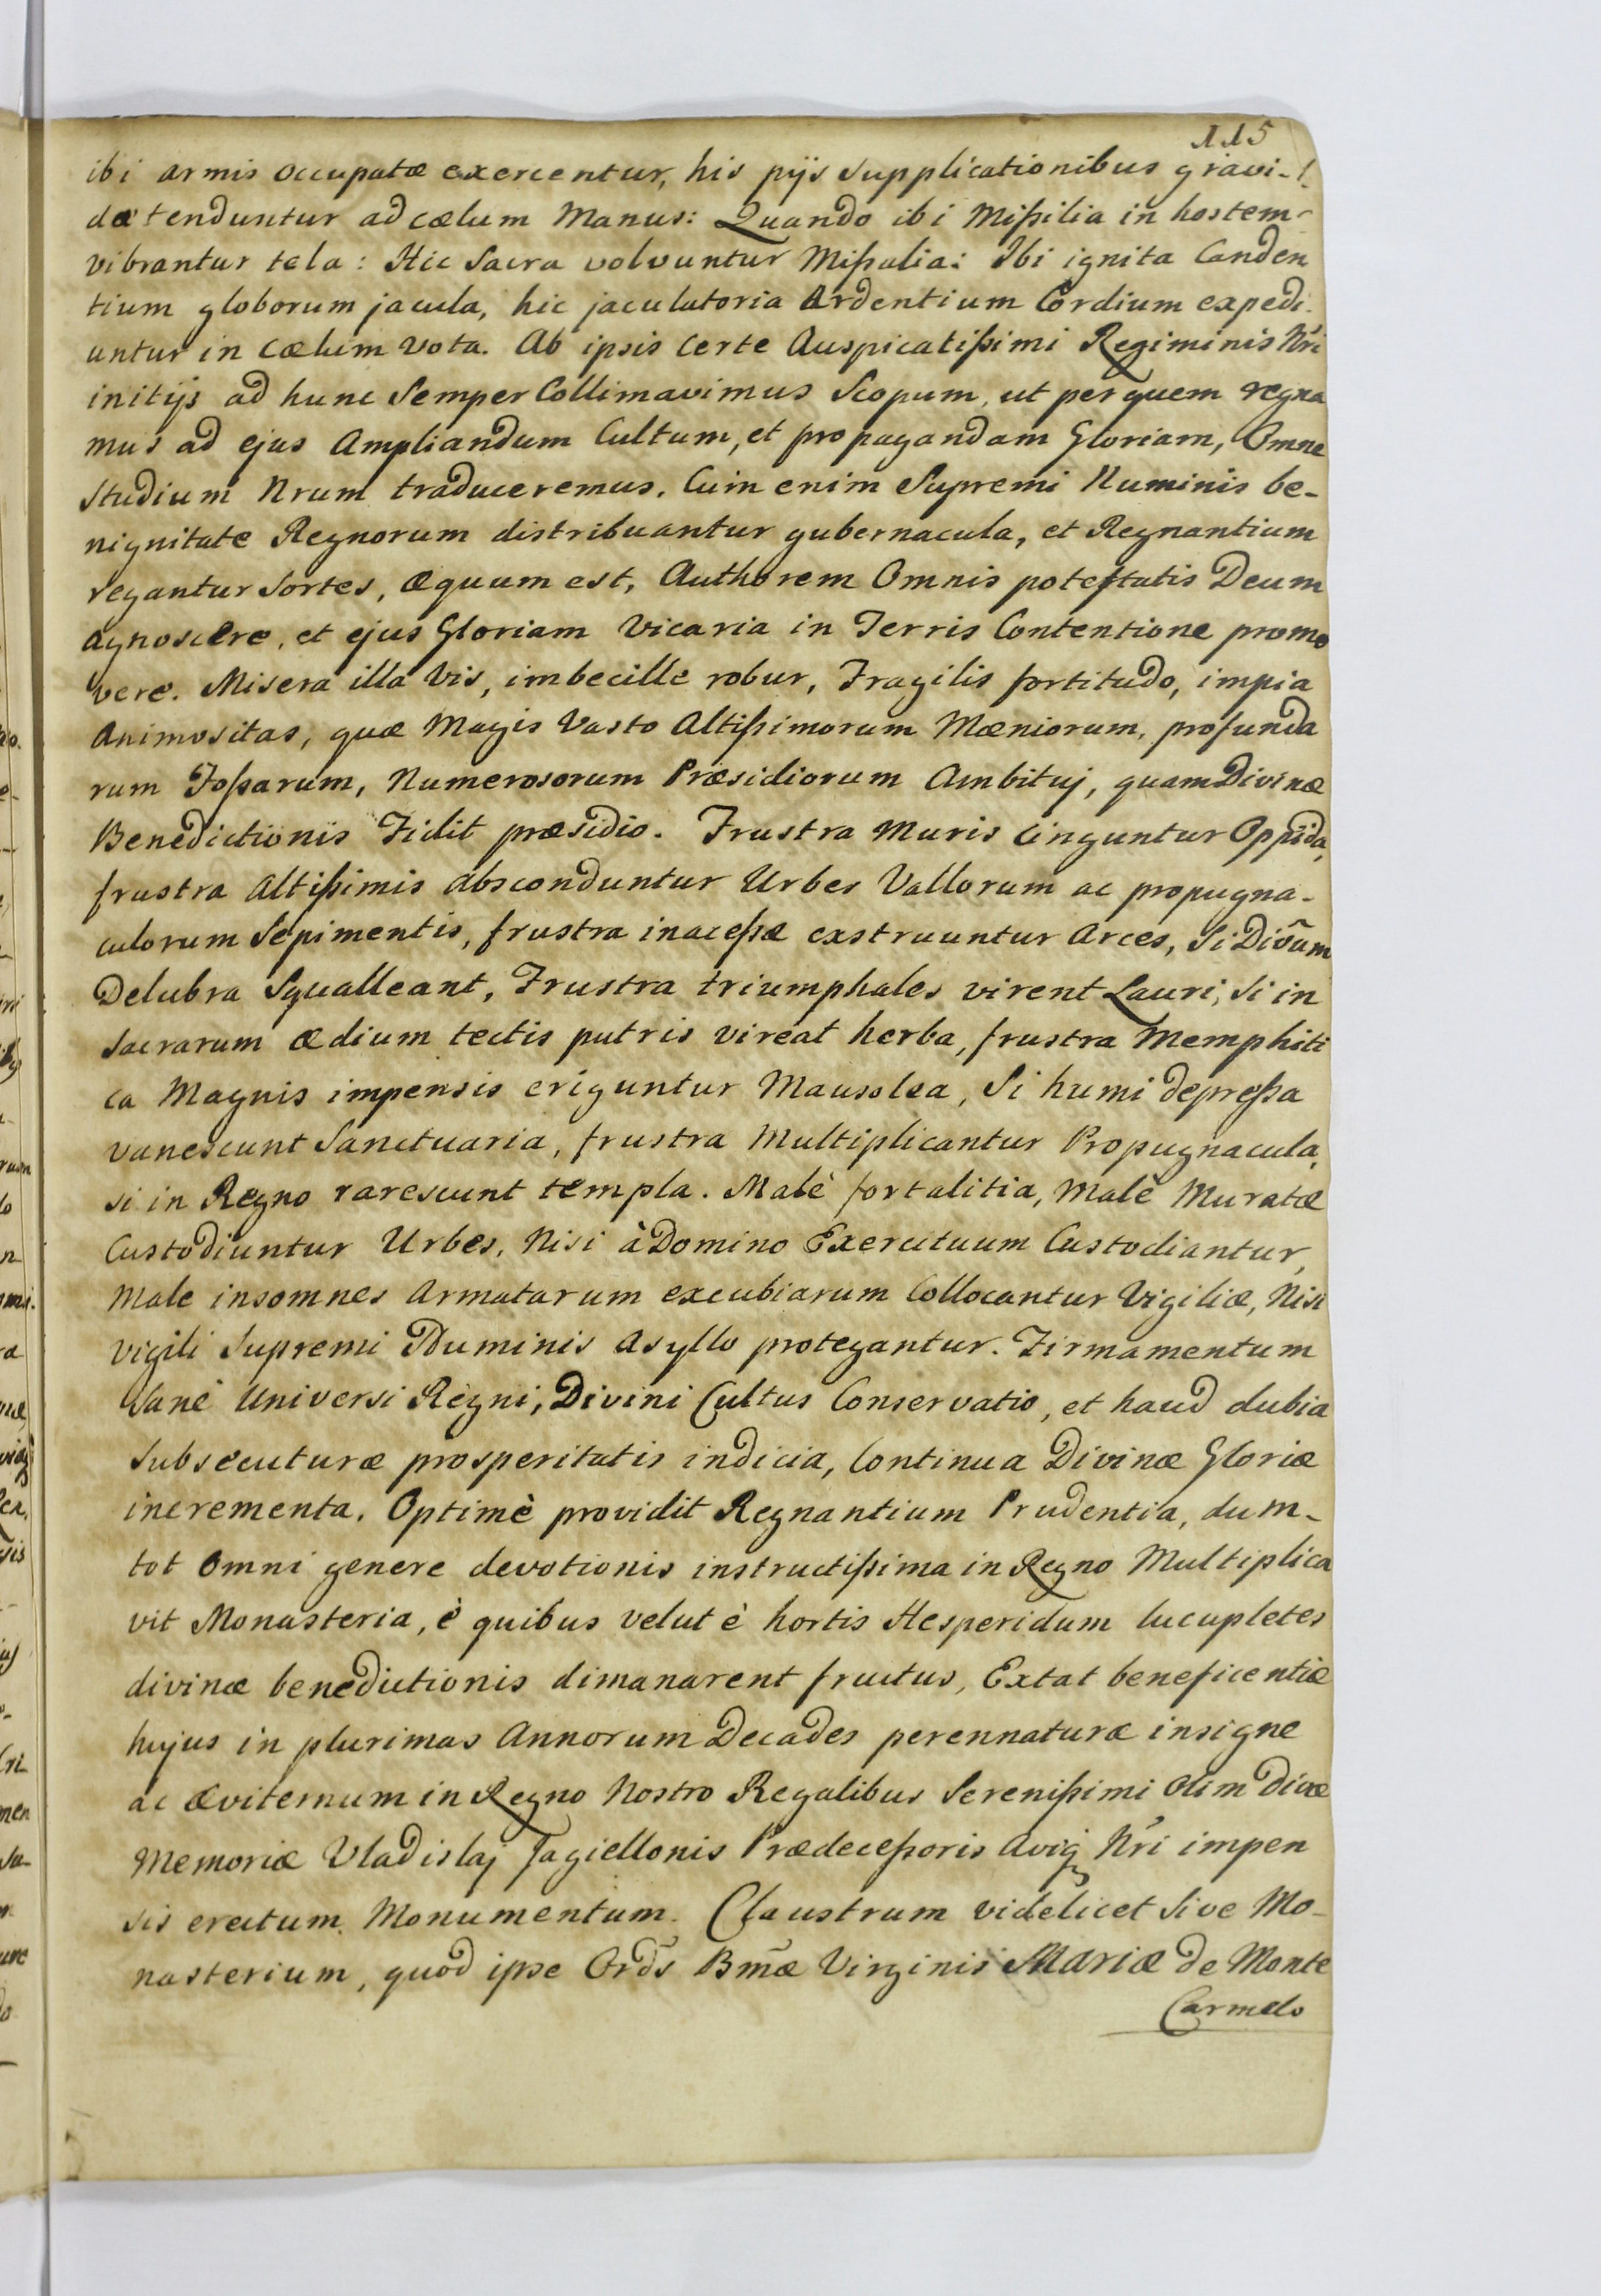 115
ibi armis occupatæ exercentur, his pijs supplicationibus gravi-
dæ tenduntur ad cælum Manus: Quando ibi Mißilia in hostem
vibrantur tela: Hic Sacra volvuntur Mißalia: Ibi ignita Canden
tium globorum jacula, hic jaculatoria Ardentium Cordium expedi-
untur in Cælum Vota. Ab ipsis Certe Auspicatißimi Regiminis Nri
initijs ad hunc Semper Collimavimus Scopum, ut per quem regna
mus ad ejus Ampliandum Cultum, et propagandam Gloriam, Omne
Studium Nrum traduceremus. Cum enim Supremi Numinis be-
nignitate Regnorum distribuantur gubernacula, et Regnantium
regantur Sortes, æquum est, Authorem Omnis potestatis Deum
agnoscere, et ejus Gloriam Vicaria in Terris Contentione promo
vere. Misera illa Vis, imbecille robur, Fragilis fortitudo, impia
Animositas, quæ Magis Vasto Altißimorum Mæniorum, profunda
rum Foßarum, Numerosorum Præsidiorum Ambituj, quam Divinæ
Benedictionis Fidit præsidio. Frustra Muris Cinguntur Oppida,
frustra Altißimis Absconduntur Urbes Vallorum ac propugna-
culorum Sepimentis, frustra inaceßæ exstruuntur Arces, Si Divũm
Delubra Squalleant, Frustra triumphales virent Lauri, Si in
Sacrarum ædium tectis putris vireat herba, frustra Memphiti
ca Magnis impensis eriguntur Mausolea, Si humi depreßa
vanescunt Sanctuaria, frustra Multiplicantur Propugnacula,
si in Regno rarescunt templa. Malè fortalitia, Malè Muratæ
Custodiuntur Urbes, Nisi à Domino Exercituum Custodiantur,
Male insomnes Armatarum excubiarum Collocantur Vigiliæ, Nisi
vigili Supremi Numinis Asyllo protegantur. Firmamentum
Sanè Universi Regni, Divini Cultus Conservatio, et haud dubia
Subsecuturæ prosperitatis indicia, Continua Divinæ Gloriæ
incrementa. Optimè providit Regnantium Prudentia, dum-
tot Omni genere devotionis instructißima in Regno Multiplica
vit Monasteria, è quibus velut è hortis Hesperidum lucupletes
divinæ benedictionis dimanarent fructus, Extat beneficentiæ
hujus in plurimas Annorum Decades perennaturæ insigne
ac æviternum in Regno Nostro Regalibus Serenißimi Olim Divæ
Memoriæ Vladislaj Jagiellonis Prædeceßoris Avij Nri impen
sis erectum Monumentum. Claustrum videlicet Sive Mo-
nasterium, quod ipse Ordĩs Bmæ̃ Virginis Mariæ de Monte
Carmelo